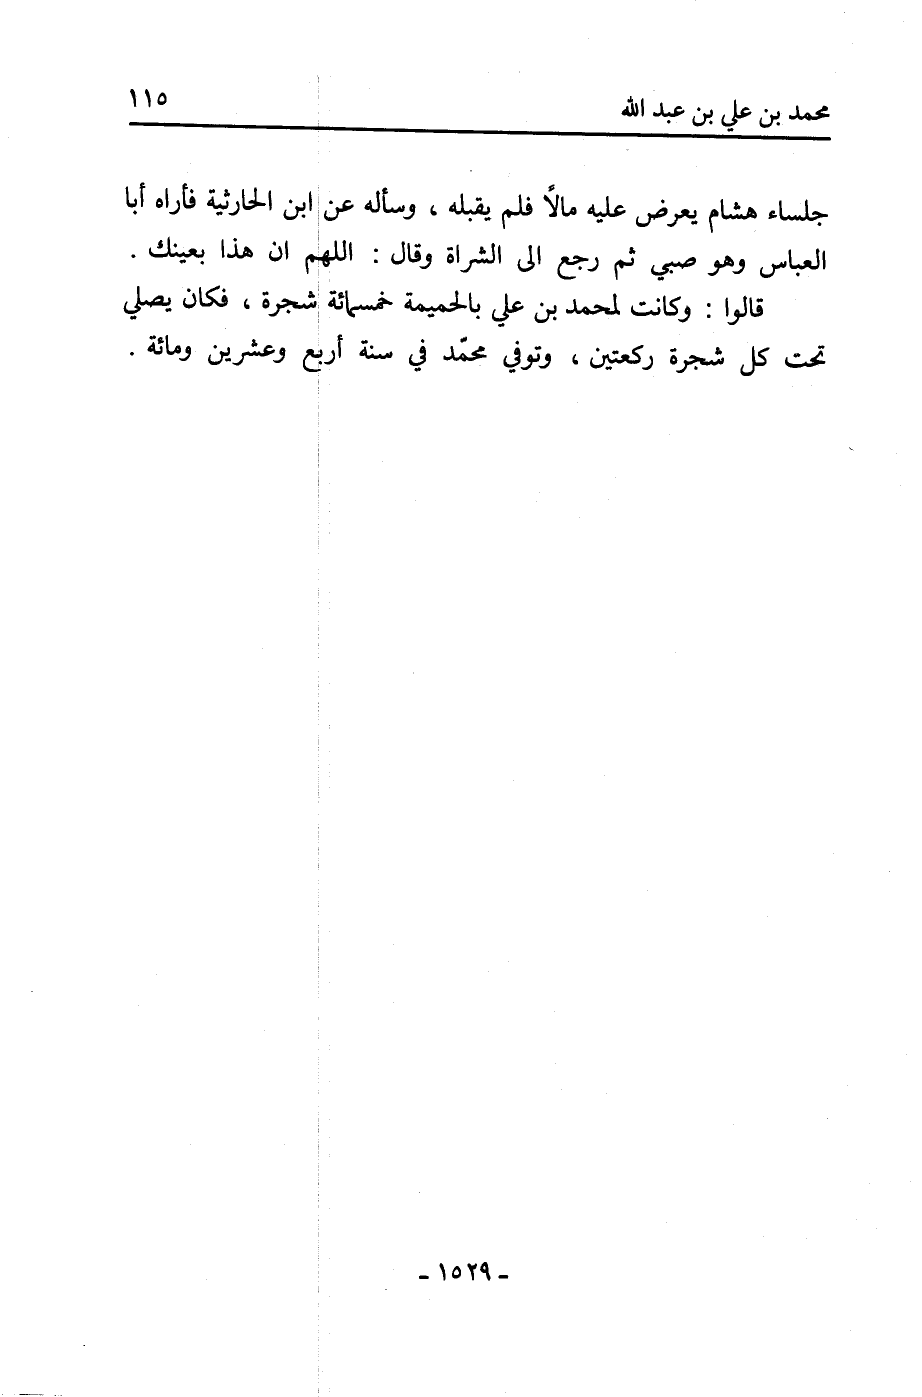 محمد بن علي بن عبد الله ١١٥
جلساء هشام يعرض عليه مالاً فلم يقبله ، وسأله عن ابن الحارثية فأراه أبا
العباس وهو صبي ثم رجع الى الشراة وقال : اللهم ان هذا بعينك .
قالوا : وكانت لمحمد بن علي بالحميمة خمسمائة شجرة ، فكان يصلي
تحت كل شجرة ركعتين ، وتوفي محمّد في سنة أربع وعشرين ومائة .
- ١٥٢٩ -